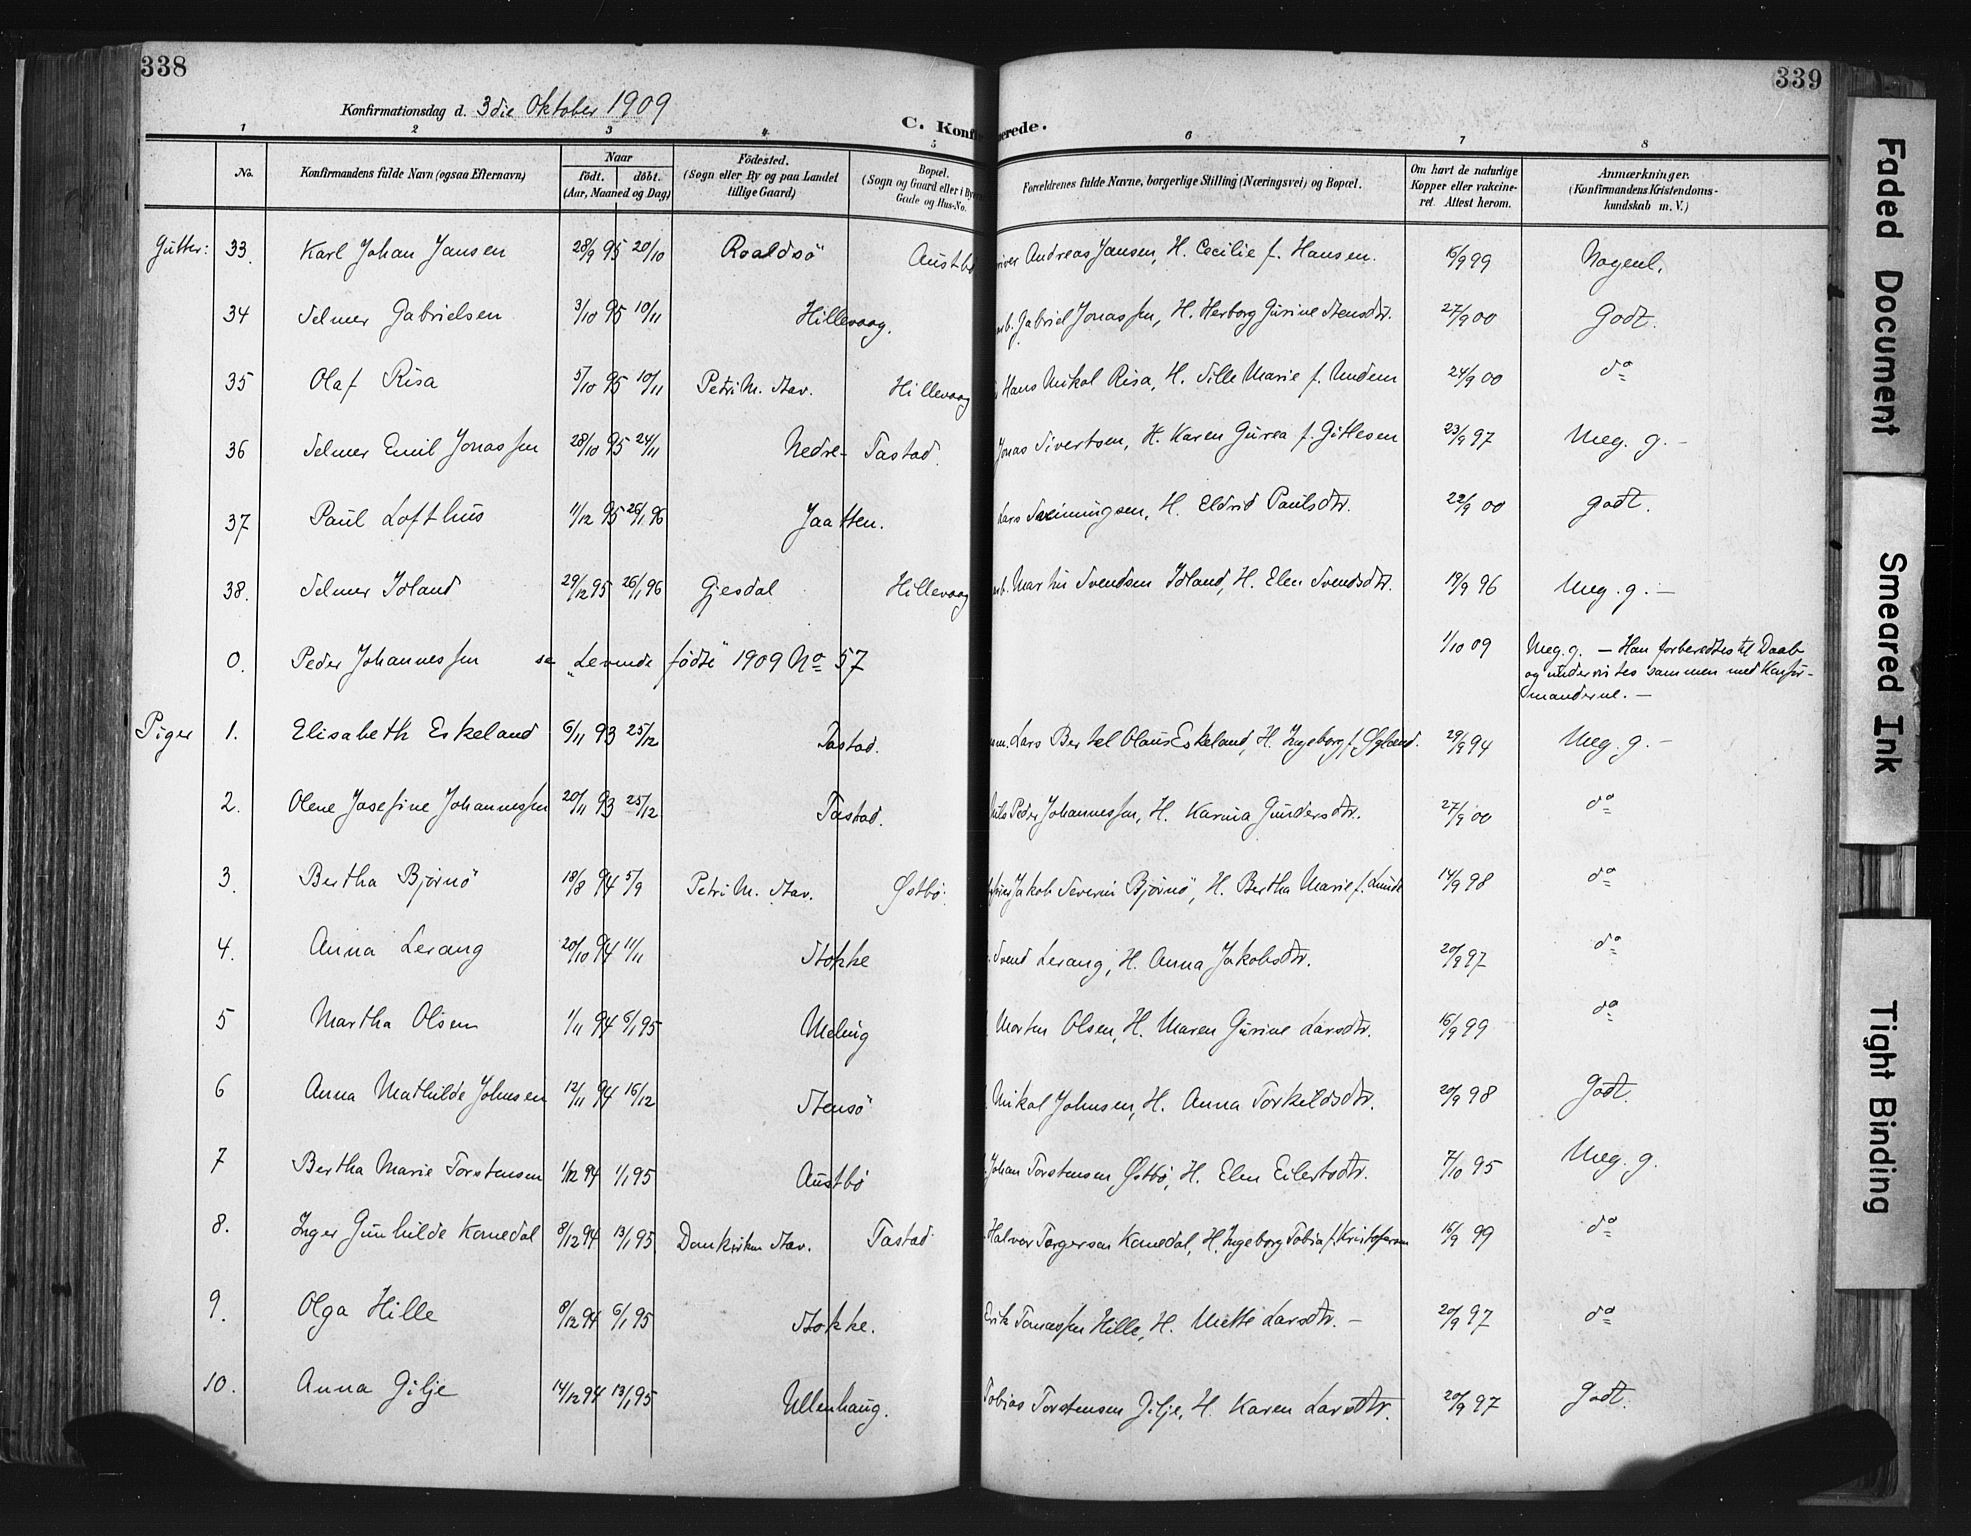 338
339
Konfirmationsdag d. 3die Oktober 1909
C. Konfi erede.
1 2 3 4 5 6 7 8
No. Konfirmandens fulde Navn (ogsaa Efternavn) Naar født. døbt. (Aar, Maaned og Dag) Fødested. (Sogn eller By og paa Landet tillige Gaard) Bopæl. (Sogn og Gaard eller i Byen Gade og Hus-No. Forældrenes fulde Navne, borgerlige Stilling (Næringsvei) og Bopæl. Om havt de naturlige Kopper eller vakcineret. Attest herom. Anmærkninger. (Konfirmandens Kristendomskundskab m. V.)
Gutter: 33. Karl Johan Jansen 28/9 95 20/10 Roaldsö Austbö Andreas Jansen, H. Cecilie f. Hansen. 16/9 99 Nogenl.
34 Selmer Gabrielsen 3/10 95 10/11 Hillevaag. arb. Gabriel Jonassen, H. Herborg Gurine Stensdtr. 27/9 00 Godt.
35 Olaf Risa 5/10 95 10/11 Petri M. Stav. Hillevaag Hans Mikal Risa, H. Sille Marie f. Undem 24/9 00 do
36 Selmer Emil Jonassen 28/10 95 24/11 Nedre- Tastad. Jonas Sivertsen, H. Karen Gurea f. Gitlesen 23/9 97 Meg. g. -
37 Paul Lofthus 11/12 95 26/1 96 Jaatten. Lars Sveinungsen, H. Eldrid Paulsdtr. 22/9 00 godt.
38. Selmer Idland 29/12 95 26/1 96 Gjesdal Hillevaag arb. Martin Svendsen Idland, H. Elen Svendsdtr. 19/9 96 Meg. g. —
0. Peder Johannessen se „Levende fødte" 1909 No 57 1/10 09 Meg. g. — Han forberedtes til Daab
og undervistes sammen med Konfir-
manderne. —
Piger 1. Elisabeth Eskeland 6/11 93 25/12 Tastad. Lars Bertel Olaus Eskeland, H. Ingeborg f. Øglænd. 29/9 94 Meg. g. -
2. Olene Josefine Johannessen 20/11 93 25/12 Tastad. Nils Peder Johannessen, H. Karina Gundersdtr. 27/9 00 do
3. Bertha Bjørnö 18/8 94 5/9 Petri M. Stav. Østbö. Jakob Severin Bjørnö, H. Bertha Marie f. Lunde 14/9 98 do
4. Anna Lerang 20/10 94 11/11 Stokke Svend Lerang, H. Anna Jakobsdtr. 20/9 97 do
5 Martha Olsen 1/11 94 6/1 95 Meling Morten Olsen, H. Maren Gurine Larsdtr. 16/9 99 do
6 Anna Mathilde Johnsen 12/11 94 16/12 Stensö Mikal Johnsen, H. Anna Torkildsdtr. 20/9 98 Godt.
7 Bertha Marie Torstensen 1/12 94 1/1 95 Austbö Johan Torstensen Østbö, H. Elen Eilertsdtr. 7/10 95 Meg. g.
8. Inger Gunhilde Kornedal 8/12 94 13/1 95 Domkirken Stav. Tastad Halvor Torgersen Kornedal, H. Ingeborg Tobia f. Kristofersen 16/9 99 do
9. Olga Hille 8/12 94 6/1 95 Stokke. Erik Tomassen Hille, H. Mette Larsdtr. - 20/9 97 do
10. Anna Gilje 14/12 94 13/1 95 Ullenhaug. Tobias Torstensen Gilje, H. Karen Larsdtr. 20/9 97 Godt.
Faded Document
Smeared Ink
Tight Binding